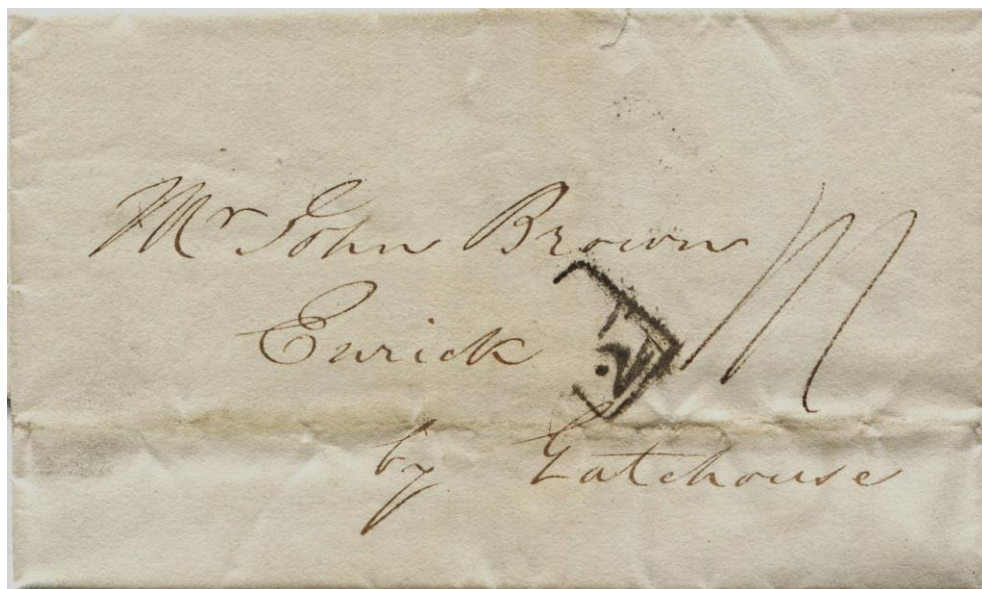 Mr John Brown
Enrick
by Gatehouse